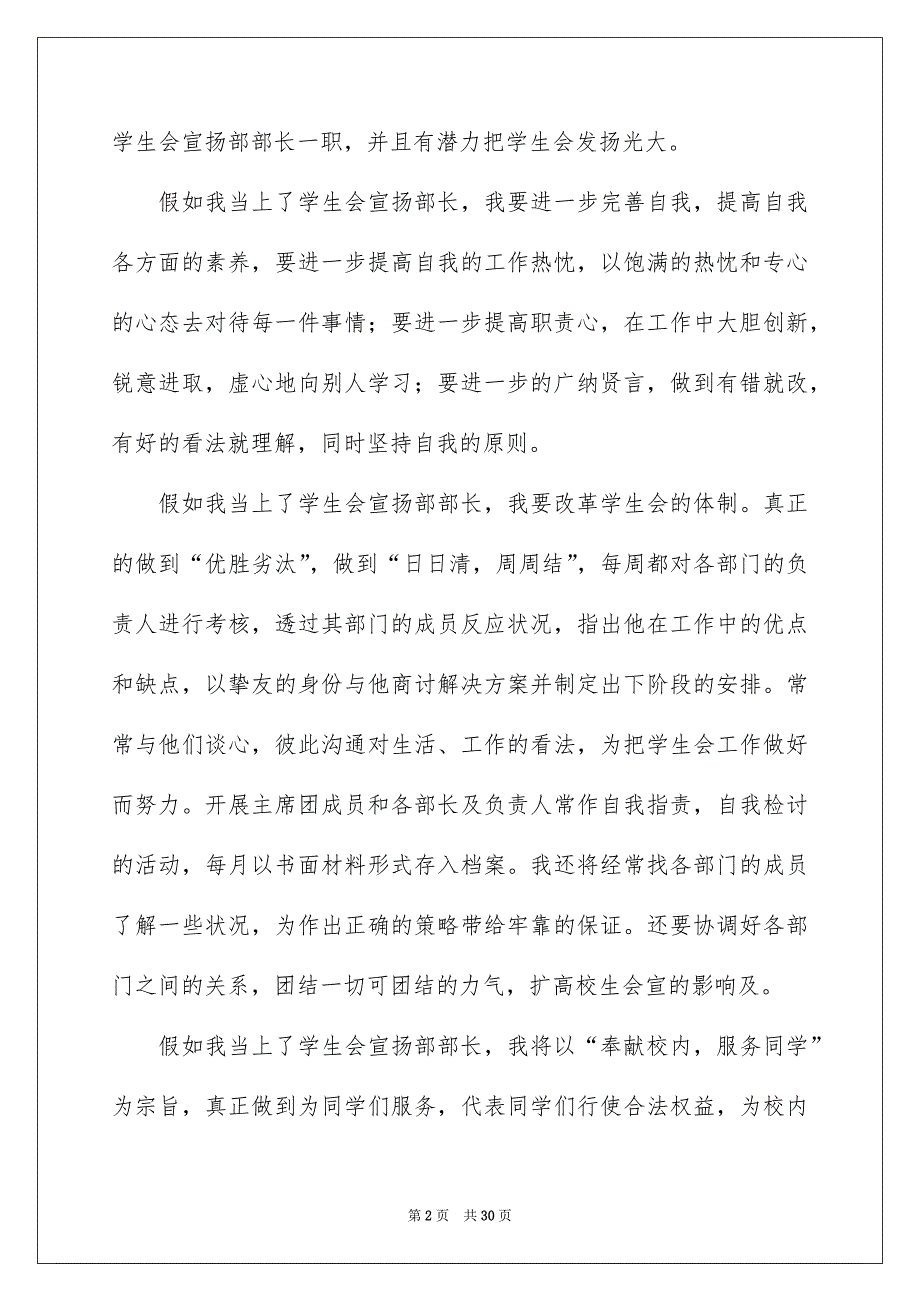 学生会宣扬部部长一职，并且有潜力把学生会发扬光大。
假如我当上了学生会宣扬部长，我要进一步完善自我，提高自我
各方面的素养，要进一步提高自我的工作热忱，以饱满的热忱和专心
的心态去对待每一件事情；要进一步提高职责心，在工作中大胆创新，
锐意进取，虚心地向别人学习；要进一步的广纳贤言，做到有错就改，
有好的看法就理解，同时坚持自我的原则。
假如我当上了学生会宣扬部部长，我要改革学生会的体制。真正
的做到“优胜劣汰”，做到“日日清，周周结”，每周都对各部门的负
责人进行考核，透过其部门的成员反应状况，指出他在工作中的优点
和缺点，以挚友的身份与他商讨解决方案并制定出下阶段的安排。常
常与他们谈心，彼此沟通对生活、工作的看法，为把学生会工作做好
而努力。开展主席团成员和各部长及负责人常作自我指责，自我检讨
的活动，每月以书面材料形式存入档案。我还将经常找各部门的成员
了解一些状况，为作出正确的策略带给牢靠的保证。还要协调好各部
门之间的关系，团结一切可团结的力气，扩高校生会宣的影响及。
假如我当上了学生会宣扬部部长，我将以“奉献校内，服务同学”
为宗旨，真正做到为同学们服务，代表同学们行使合法权益，为校内
第 2 页 共 30 页